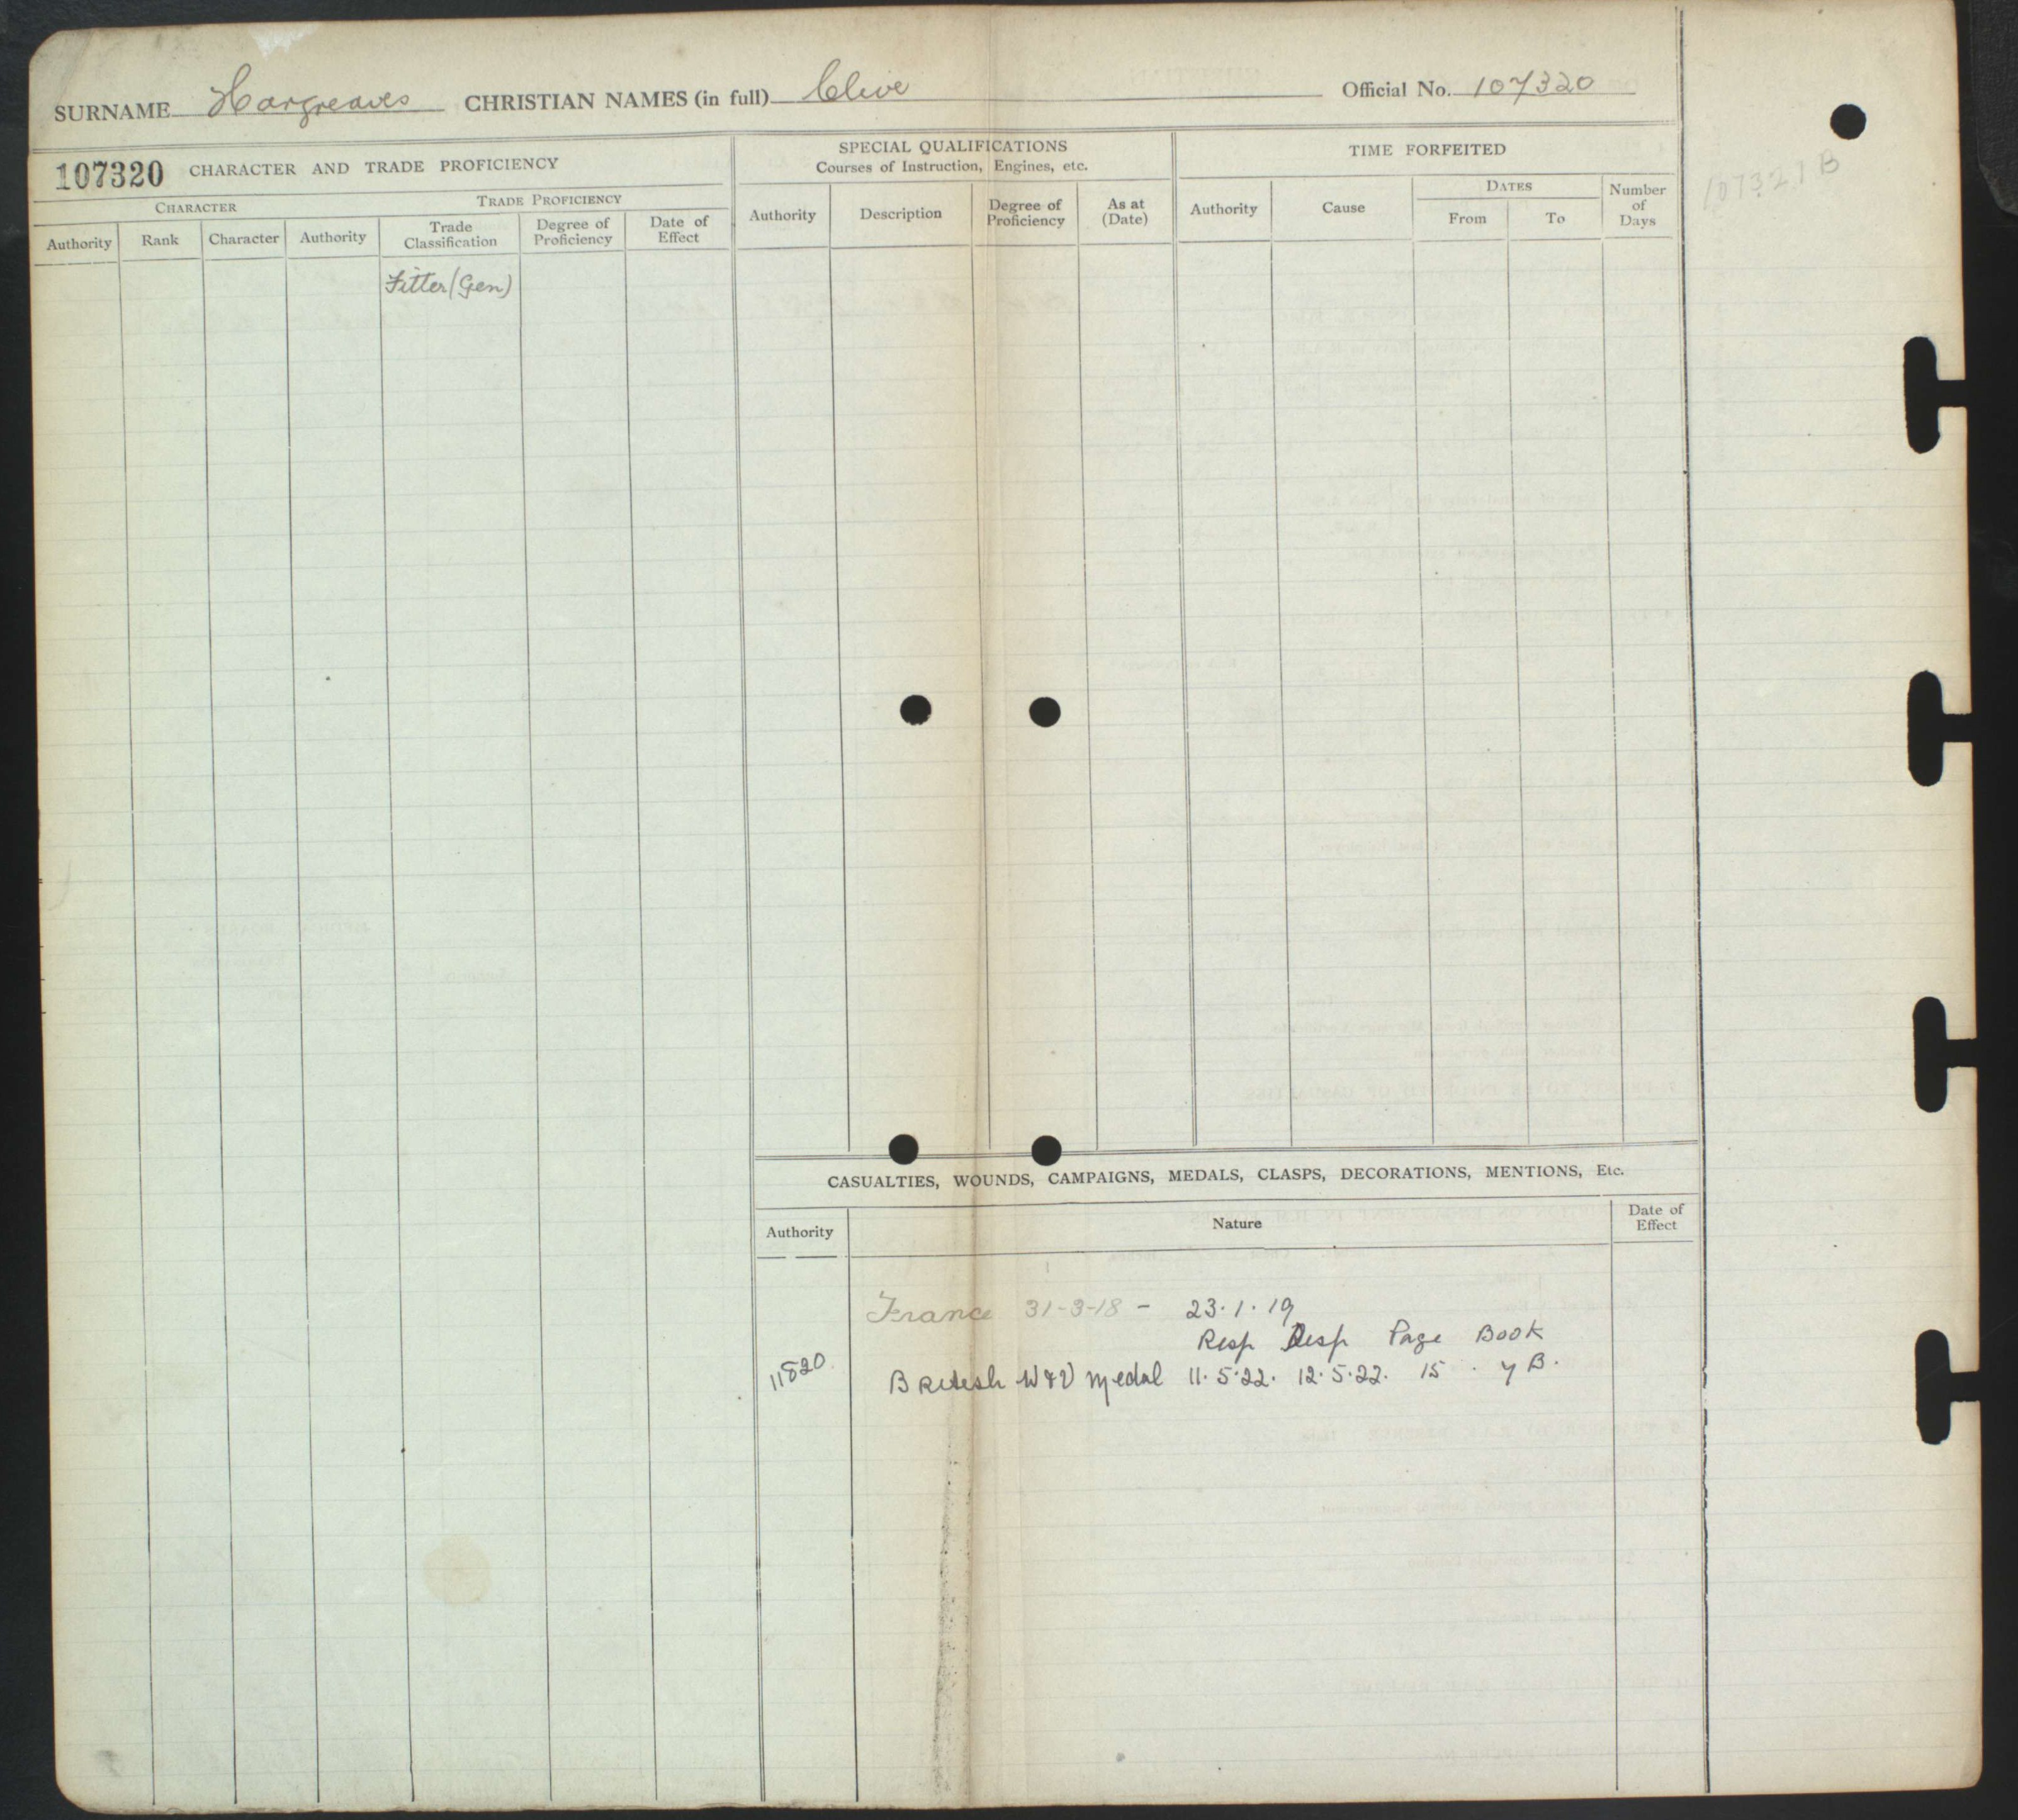 SURNAME Hargreaves CHRISTIAN NAMES (in full) Clive Official No. 107320
107320 CHARACTER AND TRADE PROFICIENCY
CHARACTER TRADE PROFICIENCY
Authority Rank Character Authority Trade Classification Degree of Proficiency Date of Effect
Fitter (Gen)
SPECIAL QUALIFICATIONS
Courses of Instruction, Engines, etc.
Authority Description Degree of Proficiency As at (Date)
TIME FORFEITED
Authority Cause DATES From To Number of Days
107321 B
CASUALTIES, WOUNDS, CAMPAIGNS, MEDALS, CLASPS, DECORATIONS, MENTIONS, Etc.
Authority Nature Date of Effect
France 31-3-18 - 23.1.19
Resp Desp Page Book
11820 British W & V Medal 11.5.22. 12.5.22. 15 . 7 B.